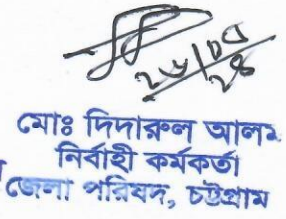 মোঃ দিদারুল আলম
নির্বাহী কর্মকর্তা
জেলা পরিষদ, চট্টগ্রাম